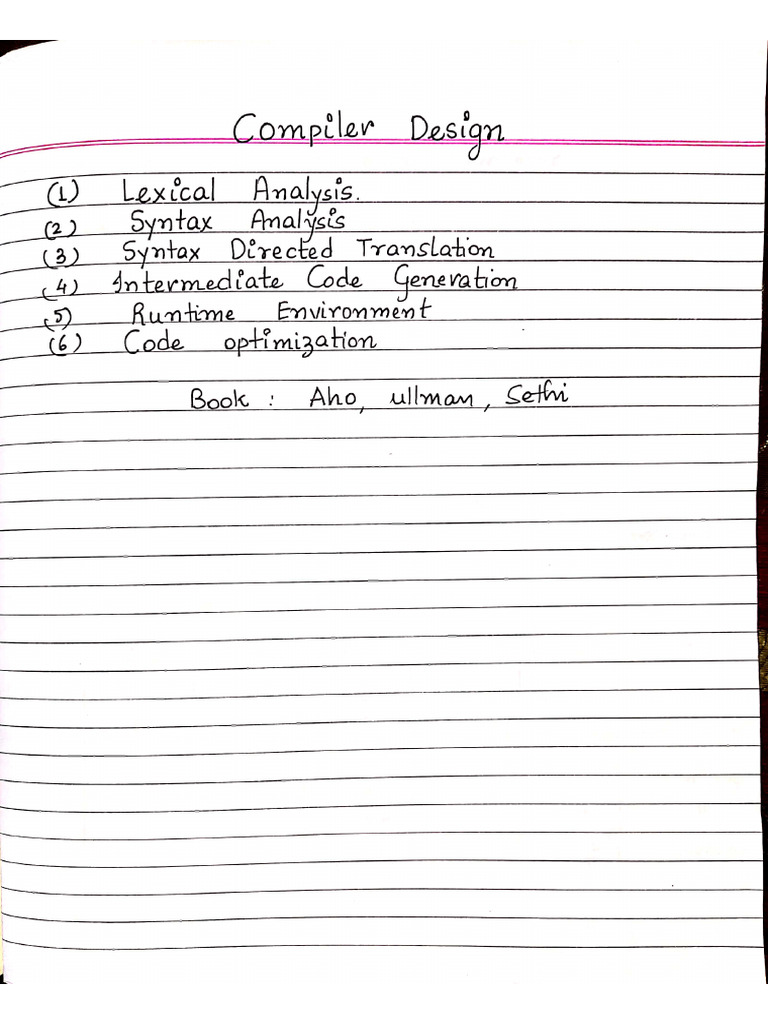 Compiler Design
(1) Lexical Analysis.
(2) Syntax Analysis
(3) Syntax Directed Translation
(4) Intermediate Code Generation
(5) Runtime Environment
(6) Code optimization
Book : Aho, ullman, Sethi